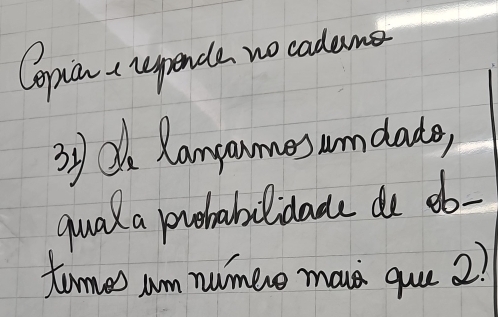 Copiar e responder no caderno
31) Se lançarmos um dado,
qual a probabilidade de ob-
termos um número maior que 2?